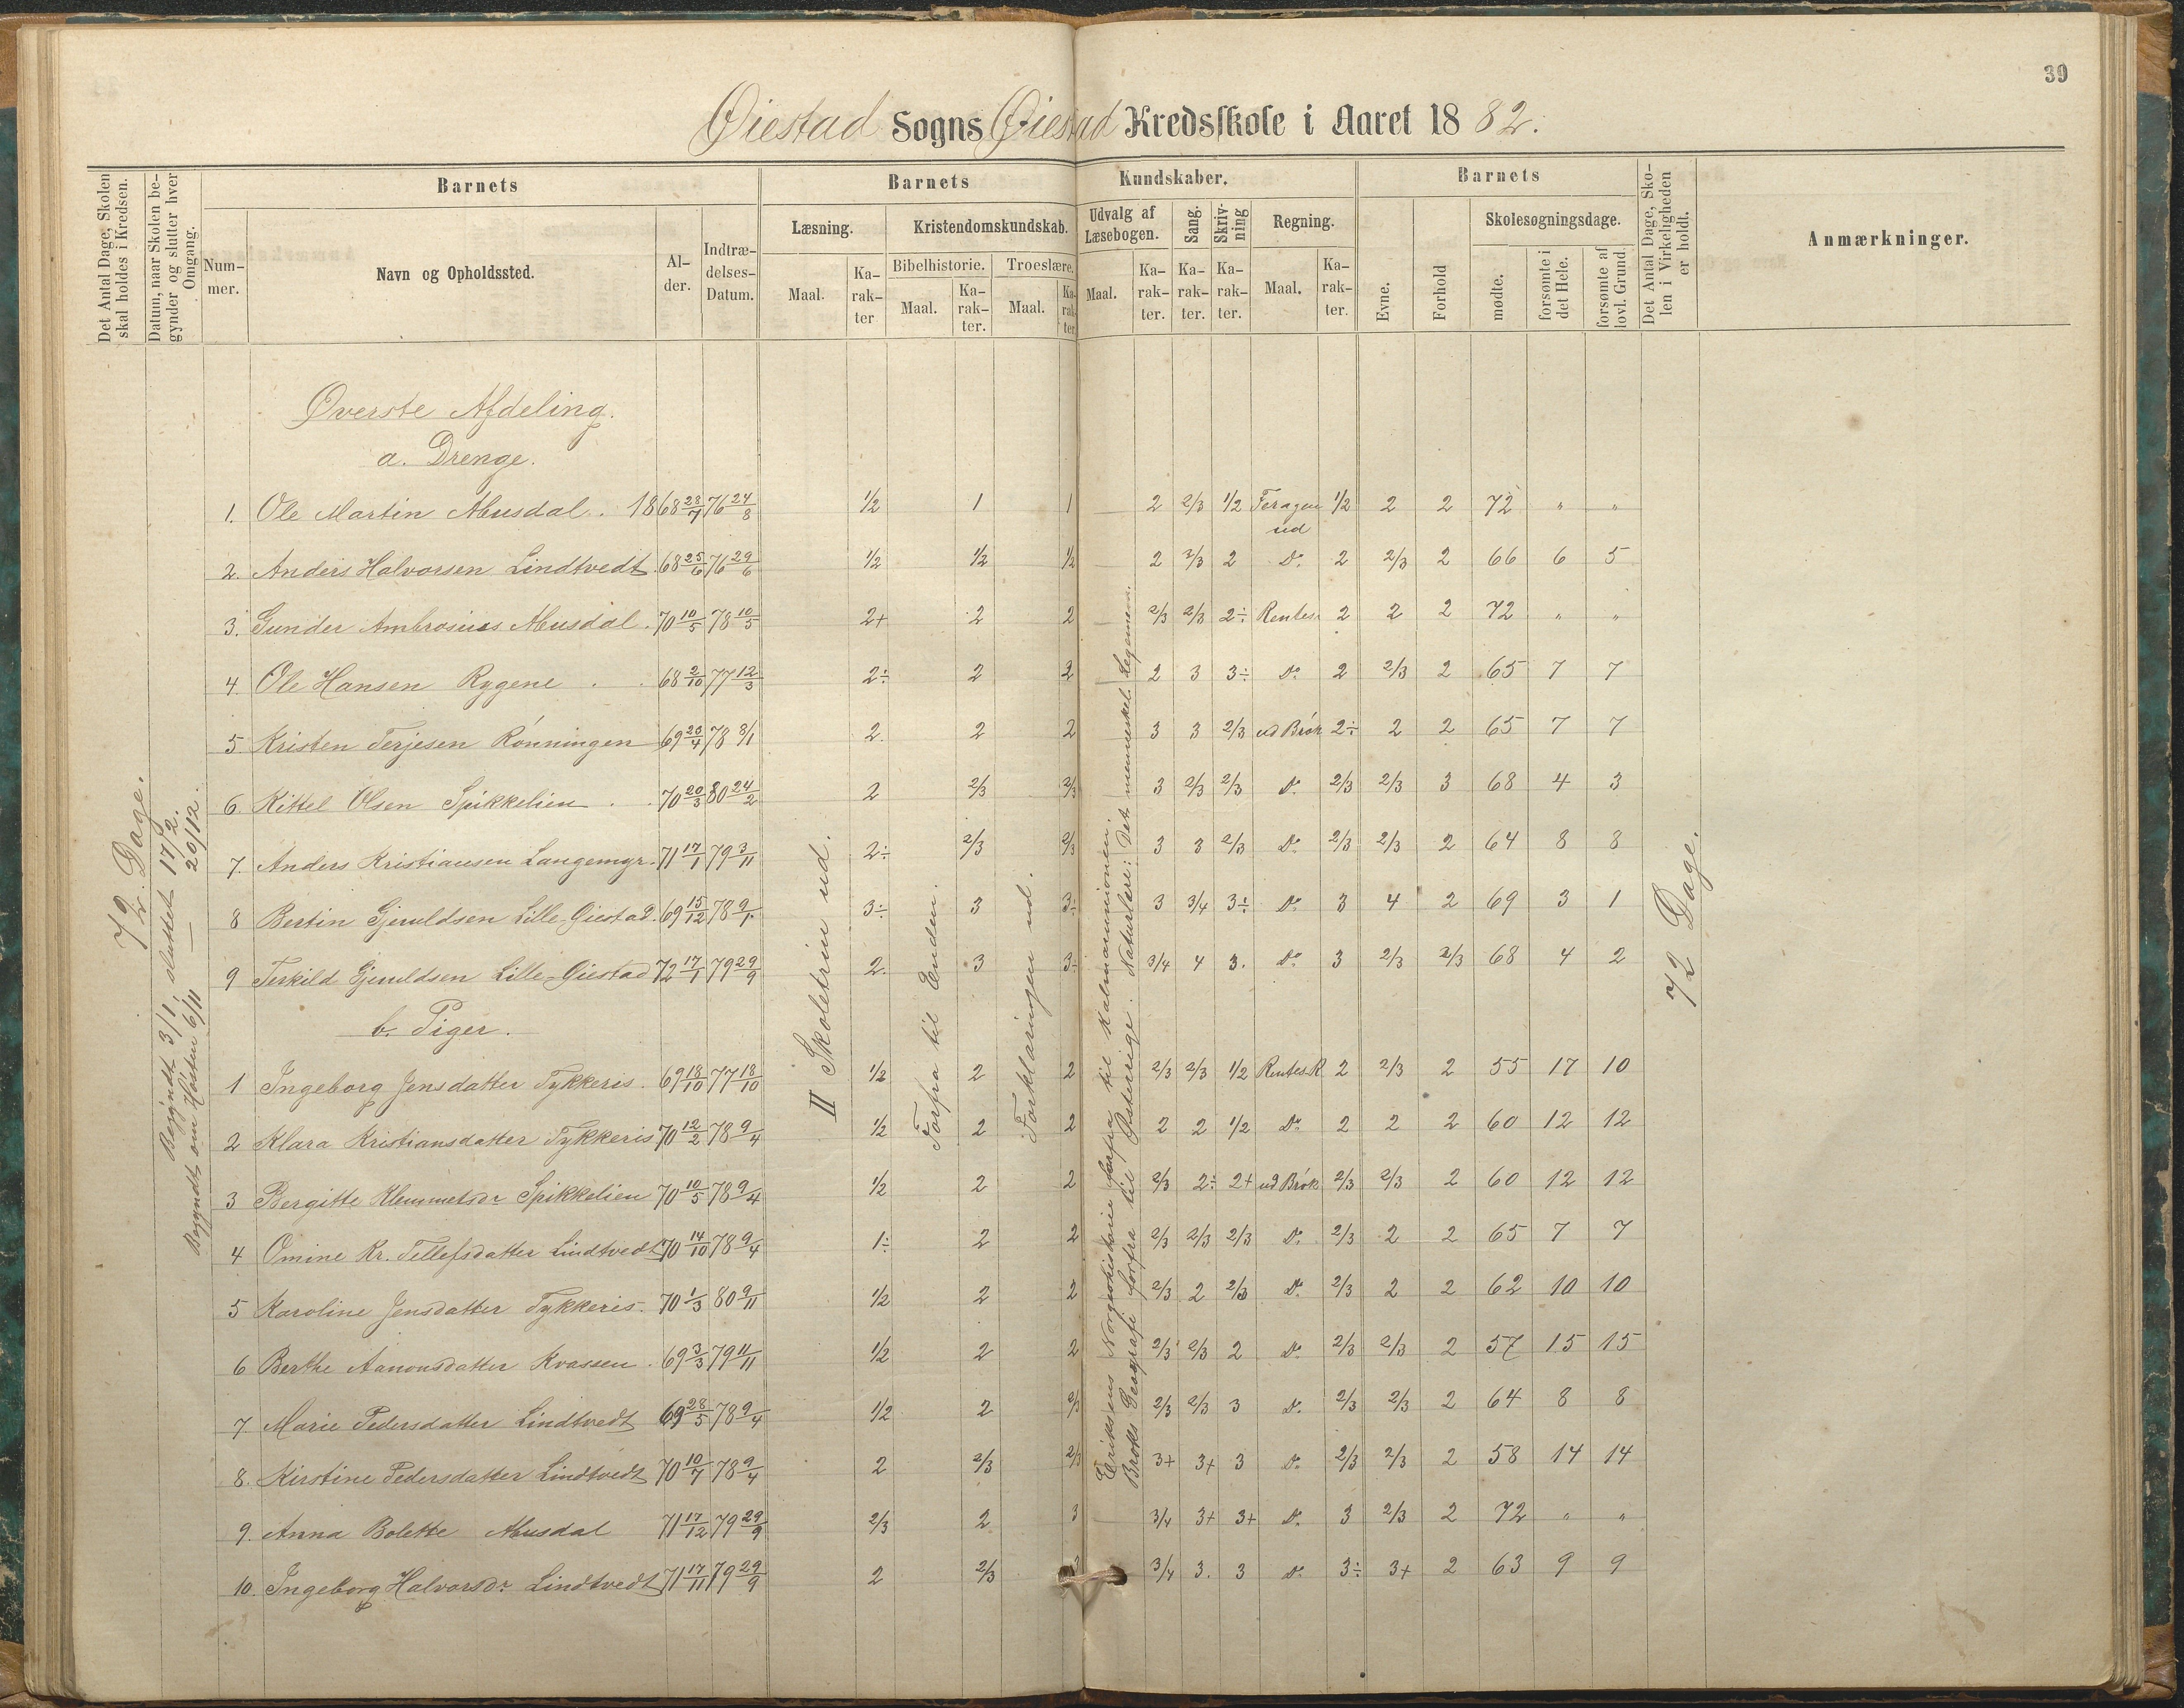 39
Øiestad Sogns Øiestad Kredsskole i Aaret 1882.
Det Antal Dage, Skolen skal holdes i Kredsen.
Datum, naar Skolen begynder og slutter hver Omgang.
Barnets
Nummer.
Navn og Opholdssted.
Alder.
Indtrædelses-Datum.
Barnets Kundskaber.
Læsning.
Maal.
Karakter
Kristendomskundskab.
Bibelhistorie.
Maal.
Karakter.
Troeslære.
Maal.
Karakter.
Udvalg af Læsebogen.
Maal.
Karakter.
Sang.
Karakter.
Skrivning
Karakter.
Regning.
Maal.
Karakter.
Barnets
Evne.
Forhold
Skolesøgningsdage.
mødte.
forsømte i det Hele.
forsømte af lovl. Grund
Det Antal Dage, Skolen i Virkeligheden er holdt.
Anmærkninger.
72 Dage.
Begyndt 3/1, sluttet 17/2.
Begyndt om Høsten 6/11 — 20/12.
II Skoletrin ud.
Forfra til Enden.
Forklaringen ud.
Eriksens Norgeshistorie forfra til Kalmarunionen.
Broks Geografi forfra til Østerrige. Naturlære: Det menneskel. Legeme.
72 Dage.
Øverste Afdeling.
a. Drenge.
1. Ole Martin Musdal. 1868 28/7 76 24/8 1/2 1 1 2 2/3 1/2 Feragen ud 1/2 2 2 72 " "
2. Anders Halvorsen Lindtvedt. 68 25/6 76 29/6 1/2 1/2 1/2 2 2/3 2 Do. 2 2/3 2 66 6 5
3. Gunder Ambrosius Musdal. 70 10/5 78 10/5 2+ 2 2 2/3 2/3 2÷ Rentes. 2 2 2 72 " "
4 Ole Hansen Rygene 68 2/10 77 12/3 2÷ 2 2 2 3 3÷ Do. 2 2/3 2 65 7 7
5 Kristen Terjesen Rønningen 69 20/4 78 8/1 2. 2 2 3 3 2/3 ud Brøk 2÷ 2 2 65 7 7
6. Kittel Olsen Spikkelien 70 20/3 80 24/2 2 2/3 2/3 3 2/3 2/3 Do. 2/3 2/3 3 68 4 3
7. Anders Kristiansen Langemyr. 71 17/1 79 3/11 2÷ 2/3 2/3 3 3 2/3 Do. 2/3 2/3 2 64 8 8
8 Bertin Gjeruldsen Lille-Øiestad. 69 15/12 78 9/1 3÷ 3 3÷ 3 3/4 3÷ Do. 3 4 2 69 3 1
9 Terkild Gjeruldsen Lille-Øiestad 72 17/1 79 29/9 2. 3 3÷ 3/4 4 3. Do. 3 2/3 2/3 68 4 2
b. Piger.
1 Ingeborg Jensdatter Tykkeris. 69 18/10 77 18/10 1/2 2 2 2/3 2/3 1/2 Rentes.R 2 2/3 2 55 17 10
2 Klara Kristiansdatter Tykkeris 70 12/2 78 9/4 1/2 2 2 2 2 1/2 Do. 2 2 2 60 12 12
3 Bergitte Klemmetsdr Spikkelien 70 10/5 78 9/4 1/2 2 2 2/3 2÷ 2+ ud Brøk 2/3 2/3 2 60 12 12
4 Omine Kr. Tellefsdatter Lindtvedt 70 14/10 78 9/4 1÷ 2 2 2/3 2/3 2/3 Do. 2/3 2 2 65 7 7
5 Karoline Jensdatter Tykkeris. 70 1/3 80 9/11 1/2 2 2 2/3 2 2/3 Do. 2/3 2 2 62 10 10
6 Berthe Aanonsdatter Kvassen. 69 3/3 79 11/11 1/2 2 2 2/3 2/3 2 Do. 2/3 2/3 2 57 15 15
7. Marie Pedersdatter Lindtvedt 69 28/5 78 9/4 1/2 2 2/3 2/3 2/3 3 Do. 2/3 2/3 2 64 8 8
8. Kirstine Pedersdatter Lindtvedt 70 10/7 78 9/4 2 2/3 2/3 3+ 3+ 3 Do. 2/3 2/3 2 58 14 14
9. Anna Bolette Musdal 71 17/12 79 29/9 2/3 2 3 3/4 3+ 3+ Do. 3 2/3 2 72 " "
10. Ingeborg Halvorsdr Lindtvedt 71 17/11 79 29/9 2 2/3 3/4 3. 3 Do. 3÷ 3+ 2 63 9 9